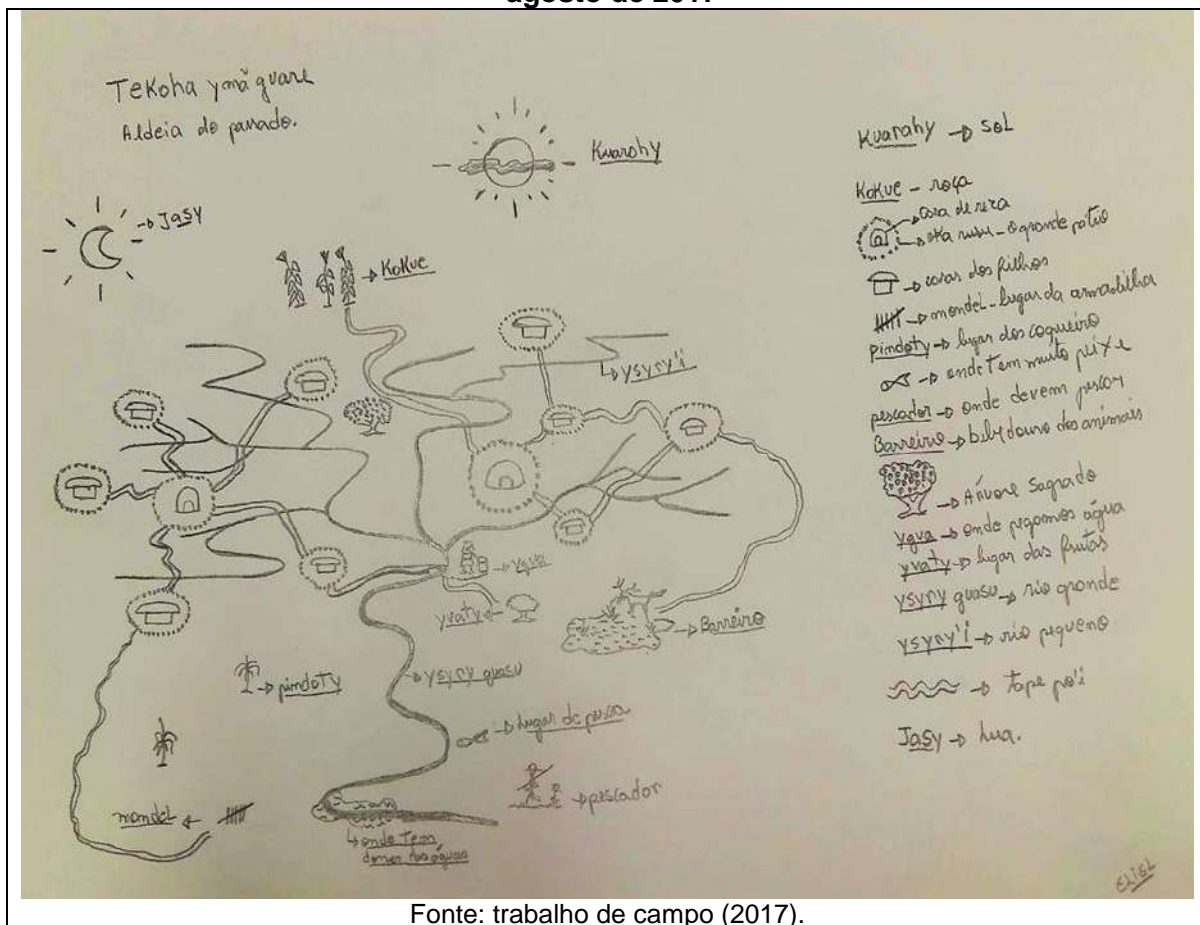 agosto de 2017
Tekoha ymã guare
Aldeia do passado.
Kuarahy
Jasy
Kokue
ysyry'i
ygua
yvaty
Barreiro
pindoty
ysyry guasu
lugar de pesca
pescador
mondel
onde tem
donos das águas
Kuarahy → sol
Kokue - roça
casa de reza
oka rusu - o grande patio
casas dos filhos
mondel - lugar da armadilha
pindoty → lugar dos coqueiro
→ onde tem muito peixe
pescador → onde devem pescar
Barreiro → bebydouro dos animais
→ Árvore Sagrado
ygua → onde pegamos água
yvaty → lugar das frutas
ysyry guasu → rio grande
ysyry'i → rio pequeno
→ tape po'i
Jasy → lua.
ELIEL
Fonte: trabalho de campo (2017).